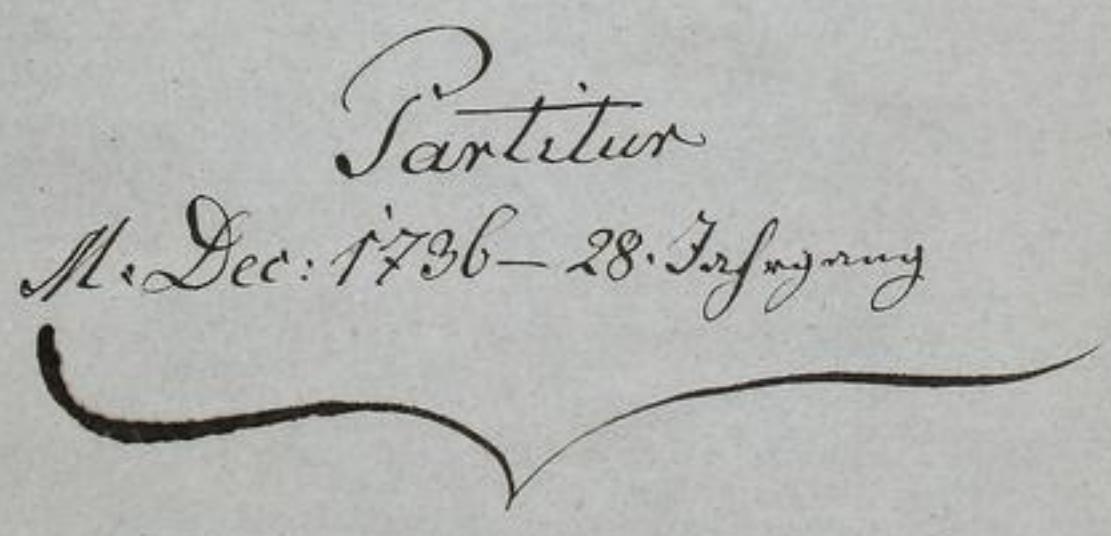 Partitur
M. Dec: 1736 — 28. Jahrgang